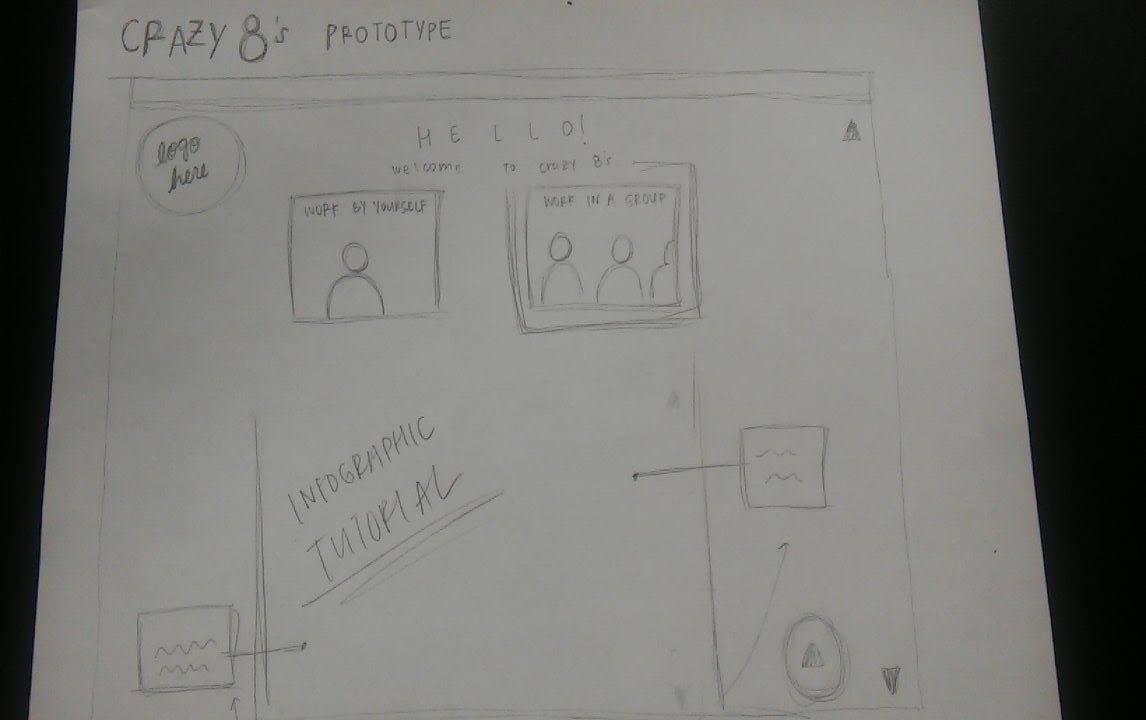 CRAZY 8's PROTOTYPE
logo
here
HELLO!
welcome to crazy 8's
WORK BY YOURSELF
WORK IN A GROUP
INFOGRAPHIC
TUTORIAL